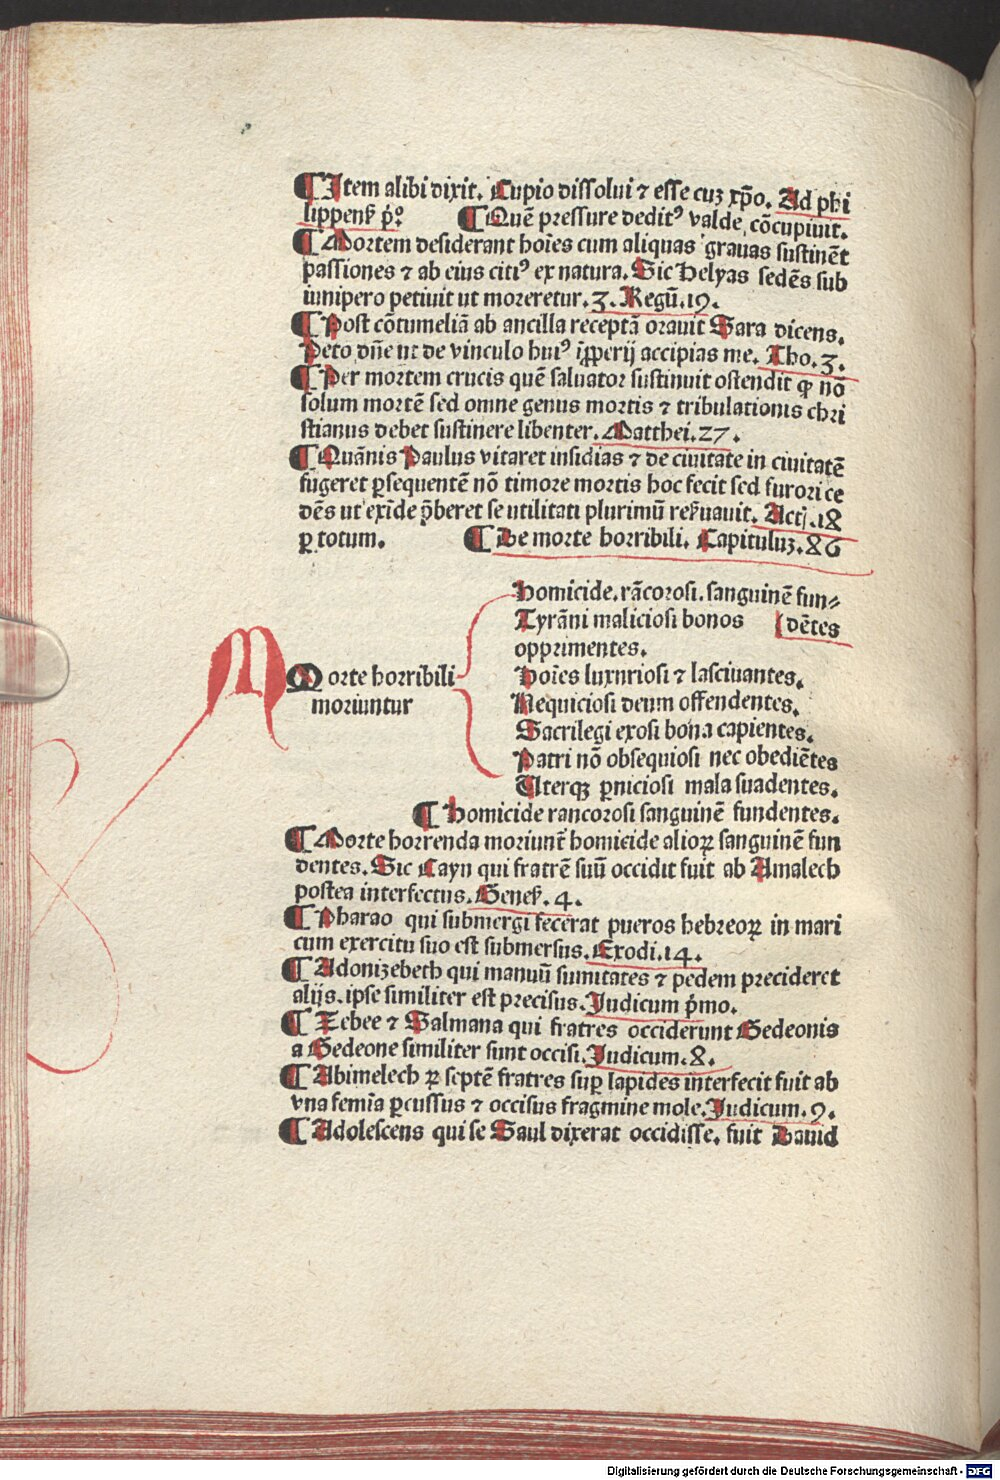 ¶ Item alibi dixit. Cupio dissolui ⁊ esse cuȝ xp̄o. Ad phi
lippenẜ p̄ꝰ ¶ Quē pressure deditꝰ valde cōcupiuit.
¶ Mortem desiderant hoīes cum aliquas grauas sustinēt
passiones ⁊ ab eius citiꝰ ex natura. Sic Helyas sedēs sub
iunipero petiuit ut moreretur. 3. Regū. 19.
¶ Post cōtumeliā ab ancilla receptā orauit Sara dicens.
Peto dn̄e ut de vinculo huiꝰ īꝓperij accipias me. Tho. 3.
¶ Per mortem crucis quē saluator sustinuit ostendit ꝙ nō
solum mortē sed omne genus mortis ⁊ tribulationis chri
stianus debet sustinere libenter. Matthei. 27.
¶ Quāuis Paulus vitaret insidias ⁊ de ciuitate in ciuitatē
fugeret ꝑsequentē nō timore mortis hoc fecit sed furori ce
dēs ut exīde p̄beret se utilitati plurimū reẜuauit. Actj. 18
ꝑ totum. ¶ De morte horribili. Capituluȝ. 86
Homicide. rācorosi. sanguinē fun⸗
Tyrāni maliciosi bonos [dētes
opprimentes.
M Morte horribili
moriuntur
Hoīes luxuriosi ⁊ lasciuantes.
Nequiciosi deum offendentes.
Sacrilegi exosi bona capientes.
Patri nō obsequiosi nec obediētes
Uterqȝ ꝑniciosi mala suadentes.
¶ Homicide rancorosi sanguinē fundentes.
¶ Morte horrenda moriunt̄ homicide alioꝝ sanguinē fun
dentes. Sic Cayn qui fratrē suū occidit fuit ab Amalech
postea interfectus. Geneẜ. 4.
¶ Pharao qui submergi fecerat pueros hebreoꝝ in mari
cum exercitu suo est submersus. Exodi. 14.
¶ Adonizebeth qui manuū sumitates ⁊ pedem precideret
alijs. ipse similiter est precisus. Judicum p̄mo.
¶ Zebee ⁊ Salmana qui fratres occiderunt Gedeonis
a Gedeone similiter sunt occisi. Judicum. 8.
¶ Abimelech ꝝ septē fratres suꝑ lapides interfecit fuit ab
vna femīa ꝑcussus ⁊ occisus fragmine mole. Judicum. 9.
¶ Adolescens qui se Saul dixerat occidisse. fuit Dauid
Digitalisierung gefördert durch die Deutsche Forschungsgemeinschaft - DFG